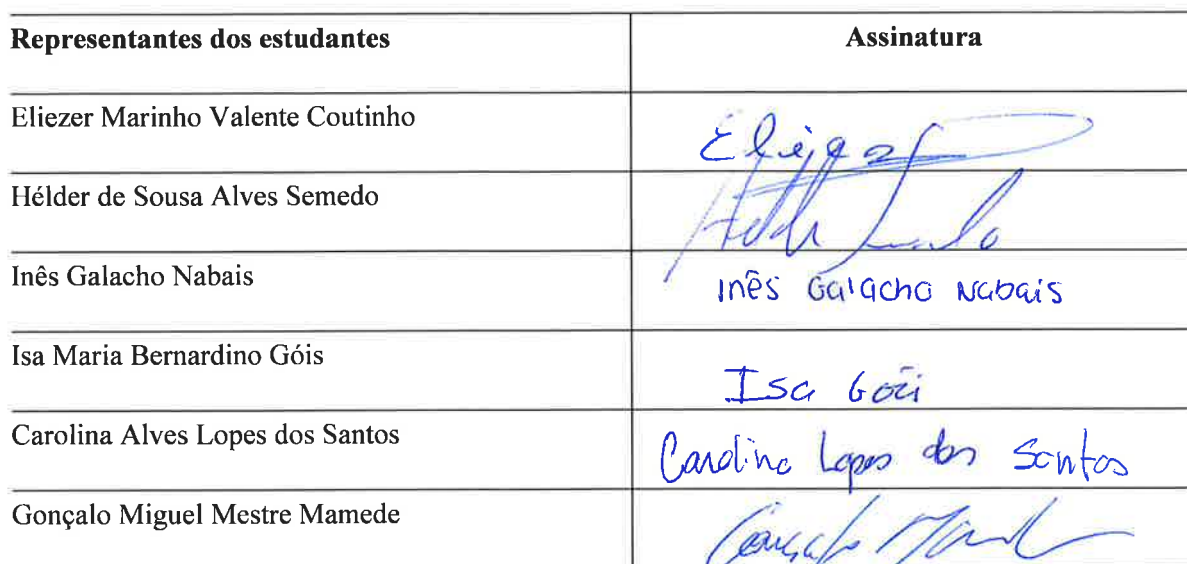 Representantes dos estudantes Assinatura
Eliezer Marinho Valente Coutinho Eliezer
Hélder de Sousa Alves Semedo
Inês Galacho Nabais Inês Galacho Nabais
Isa Maria Bernardino Góis Isa Gói
Carolina Alves Lopes dos Santos Carolina Lopes dos Santos
Gonçalo Miguel Mestre Mamede Gonçalo